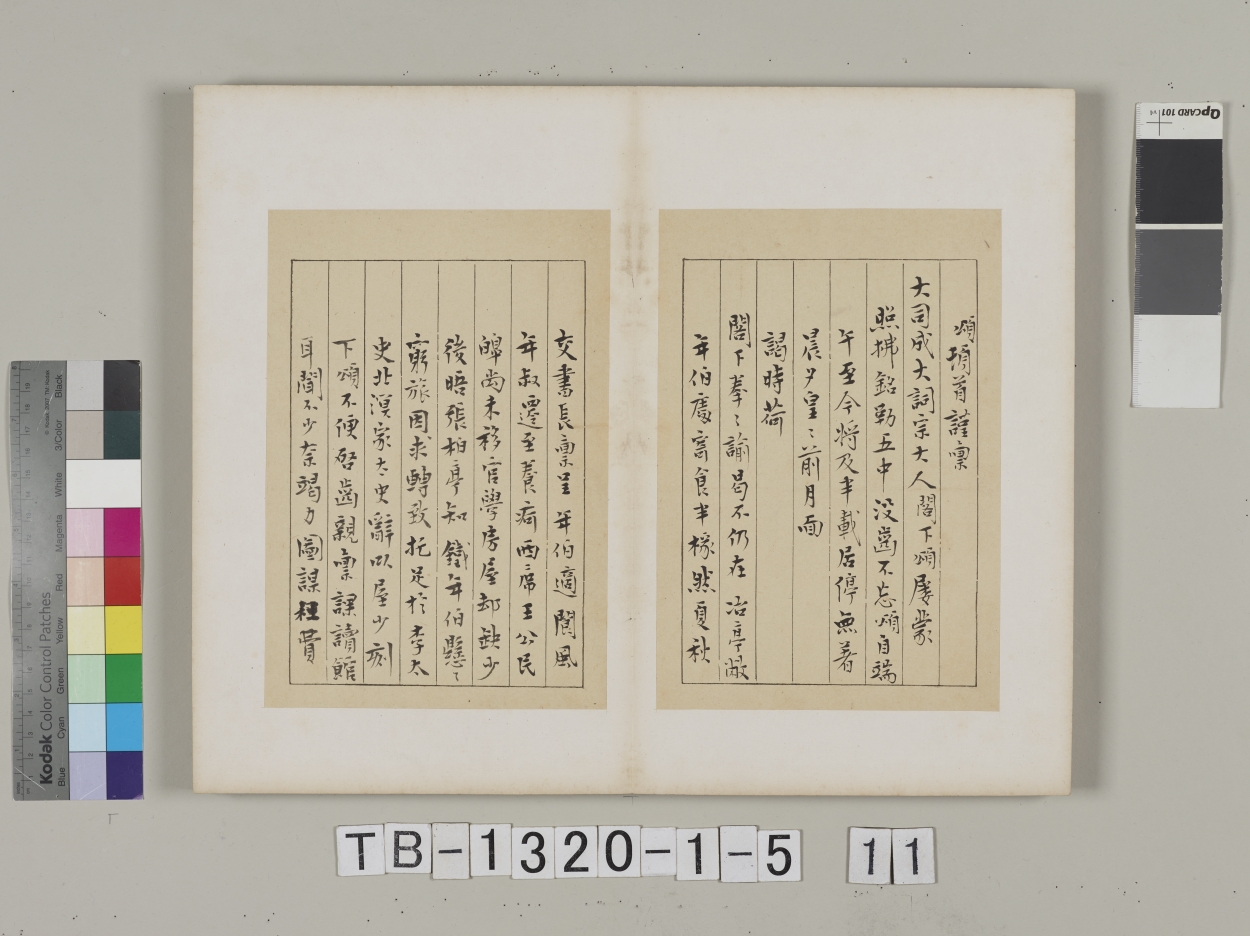 頌頊首謹稟
大司成大詞宗大人閣下頌屢蒙
照拂銘勒五中没齒不忘頌自端
午至今将及半載居停無著
晨夕皇〻前月面
謁時荷
閣下奉〻諭曷不仍在冶亭漱
年伯處寄食半椽然夏秋
交書長稟呈年伯適閬風
年叔遷至養疴西席王公民
皞尚未移官學房屋却缺少
後晤張柏亭知鐵年伯懸〻
窮旅因求轉致托足於李太
史北溟家太史辭以屋少刻
下頌不便啓齒親稟課讀館
耳聞不少奈竭力圖謀枉費
TB-1320-1-5 11
Kodak Color Control Patches
© Kodak
Blue Cyan Green Yellow Red Magenta White 3/Color Black
QPCARD 101